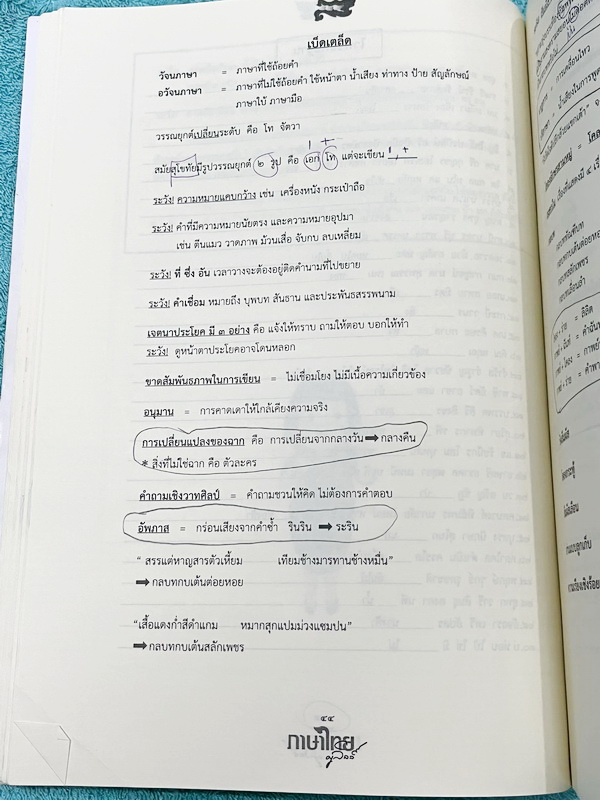 เบ็ดเตล็ด
วัจนภาษา = ภาษาที่ใช้ถ้อยคำ
อวัจนภาษา = ภาษาที่ไม่ใช้ถ้อยคำ ใช้หน้าตา น้ำเสียง ท่าทาง ป้าย สัญลักษณ์
ภาษาใบ้ ภาษามือ
วรรณยุกต์เปลี่ยนระดับ คือ โท จัตวา
สมัยสุโขทัยมีรูปวรรณยุกต์ ๒ รูป คือ เอก โท แต่จะเขียน ', +
ระวัง! ความหมายแคบกว้าง เช่น เครื่องหนัง กระเป๋าถือ
ระวัง! คำที่มีความหมายนัยตรง และความหมายอุปมา
เช่น ตีนแมว วาดภาพ ม้วนเสื่อ จับกบ ลบเหลี่ยม
ระวัง! ที่ ซึ่ง อัน เวลาวางจะต้องอยู่ติดคำนามที่ไปขยาย
ระวัง! คำเชื่อม หมายถึง บุพบท สันธาน และประพันธสรรพนาม
เจตนาประโยค มี ๓ อย่าง คือ แจ้งให้ทราบ ถามให้ตอบ บอกให้ทำ
ระวัง! ดูหน้าตาประโยคอาจโดนหลอก
ขาดสัมพันธภาพในการเขียน = ไม่เชื่อมโยง ไม่มีเนื้อความเกี่ยวข้อง
อนุมาน = การคาดเดาให้ใกล้เคียงความจริง
การเปลี่ยนแปลงของฉาก คือ การเปลี่ยนจากกลางวัน ➡ กลางคืน
* สิ่งที่ไม่ใช่ฉาก คือ ตัวละคร
คำถามเชิงวาทศิลป์ = คำถามชวนให้คิด ไม่ต้องการคำตอบ
อัพภาส = กร่อนเสียงจากคำซ้ำ รินริน ➡ ระริน
“ สรรแต่หาญสารตัวเหี้ยม เทียมช้างมารทานช้างหมื่น”
➡ กลบทกบเต้นต่อยหอย
“เสื้อแดงก่ำสีดำแกม หมากสุกแปมม่วงแซมปน”
➡ กลบทกบเต้นสลักเพชร
๔๔
ภาษาไทย